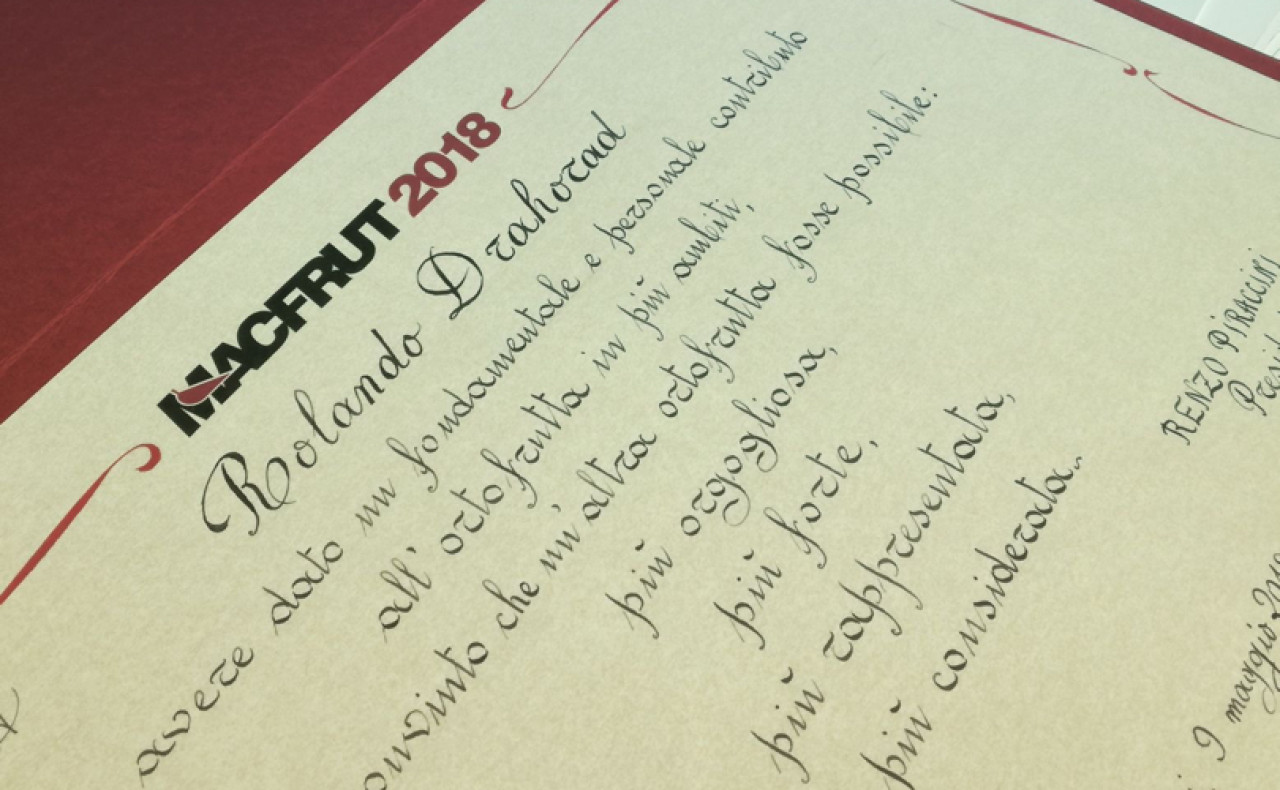 MACFRUT 2018
Rolando Drahorad
avere dato un fondamentale e personale contributo
all' ortofrutta in più ambiti,
convinto che un'altra ortofrutta fosse possibile:
più orgogliosa,
più forte,
più rappresentata,
più considerata.
RENZO PIRACCINI
Presid
9 maggio 201